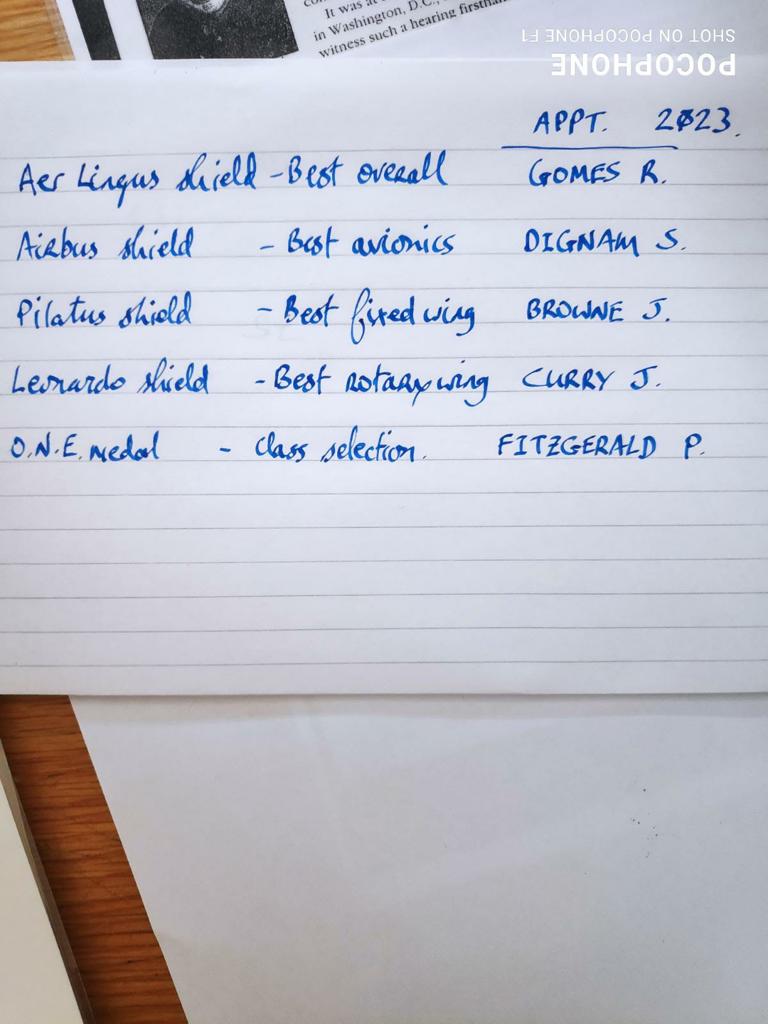 It was at
in Washington, D.C.,
witness such a hearing firsthan
SHOT ON POCOPHONE F1
POCOPHONE
APPT. 2023.
Aer Lingus shield - Best overall GOMES R.
Airbus shield - Best avionics DIGNAM S.
Pilatus shield - Best fixed wing BROWNE J.
Leonardo shield - Best rotary wing CURRY J.
O.N.E. medal - Class selection. FITZGERALD P.